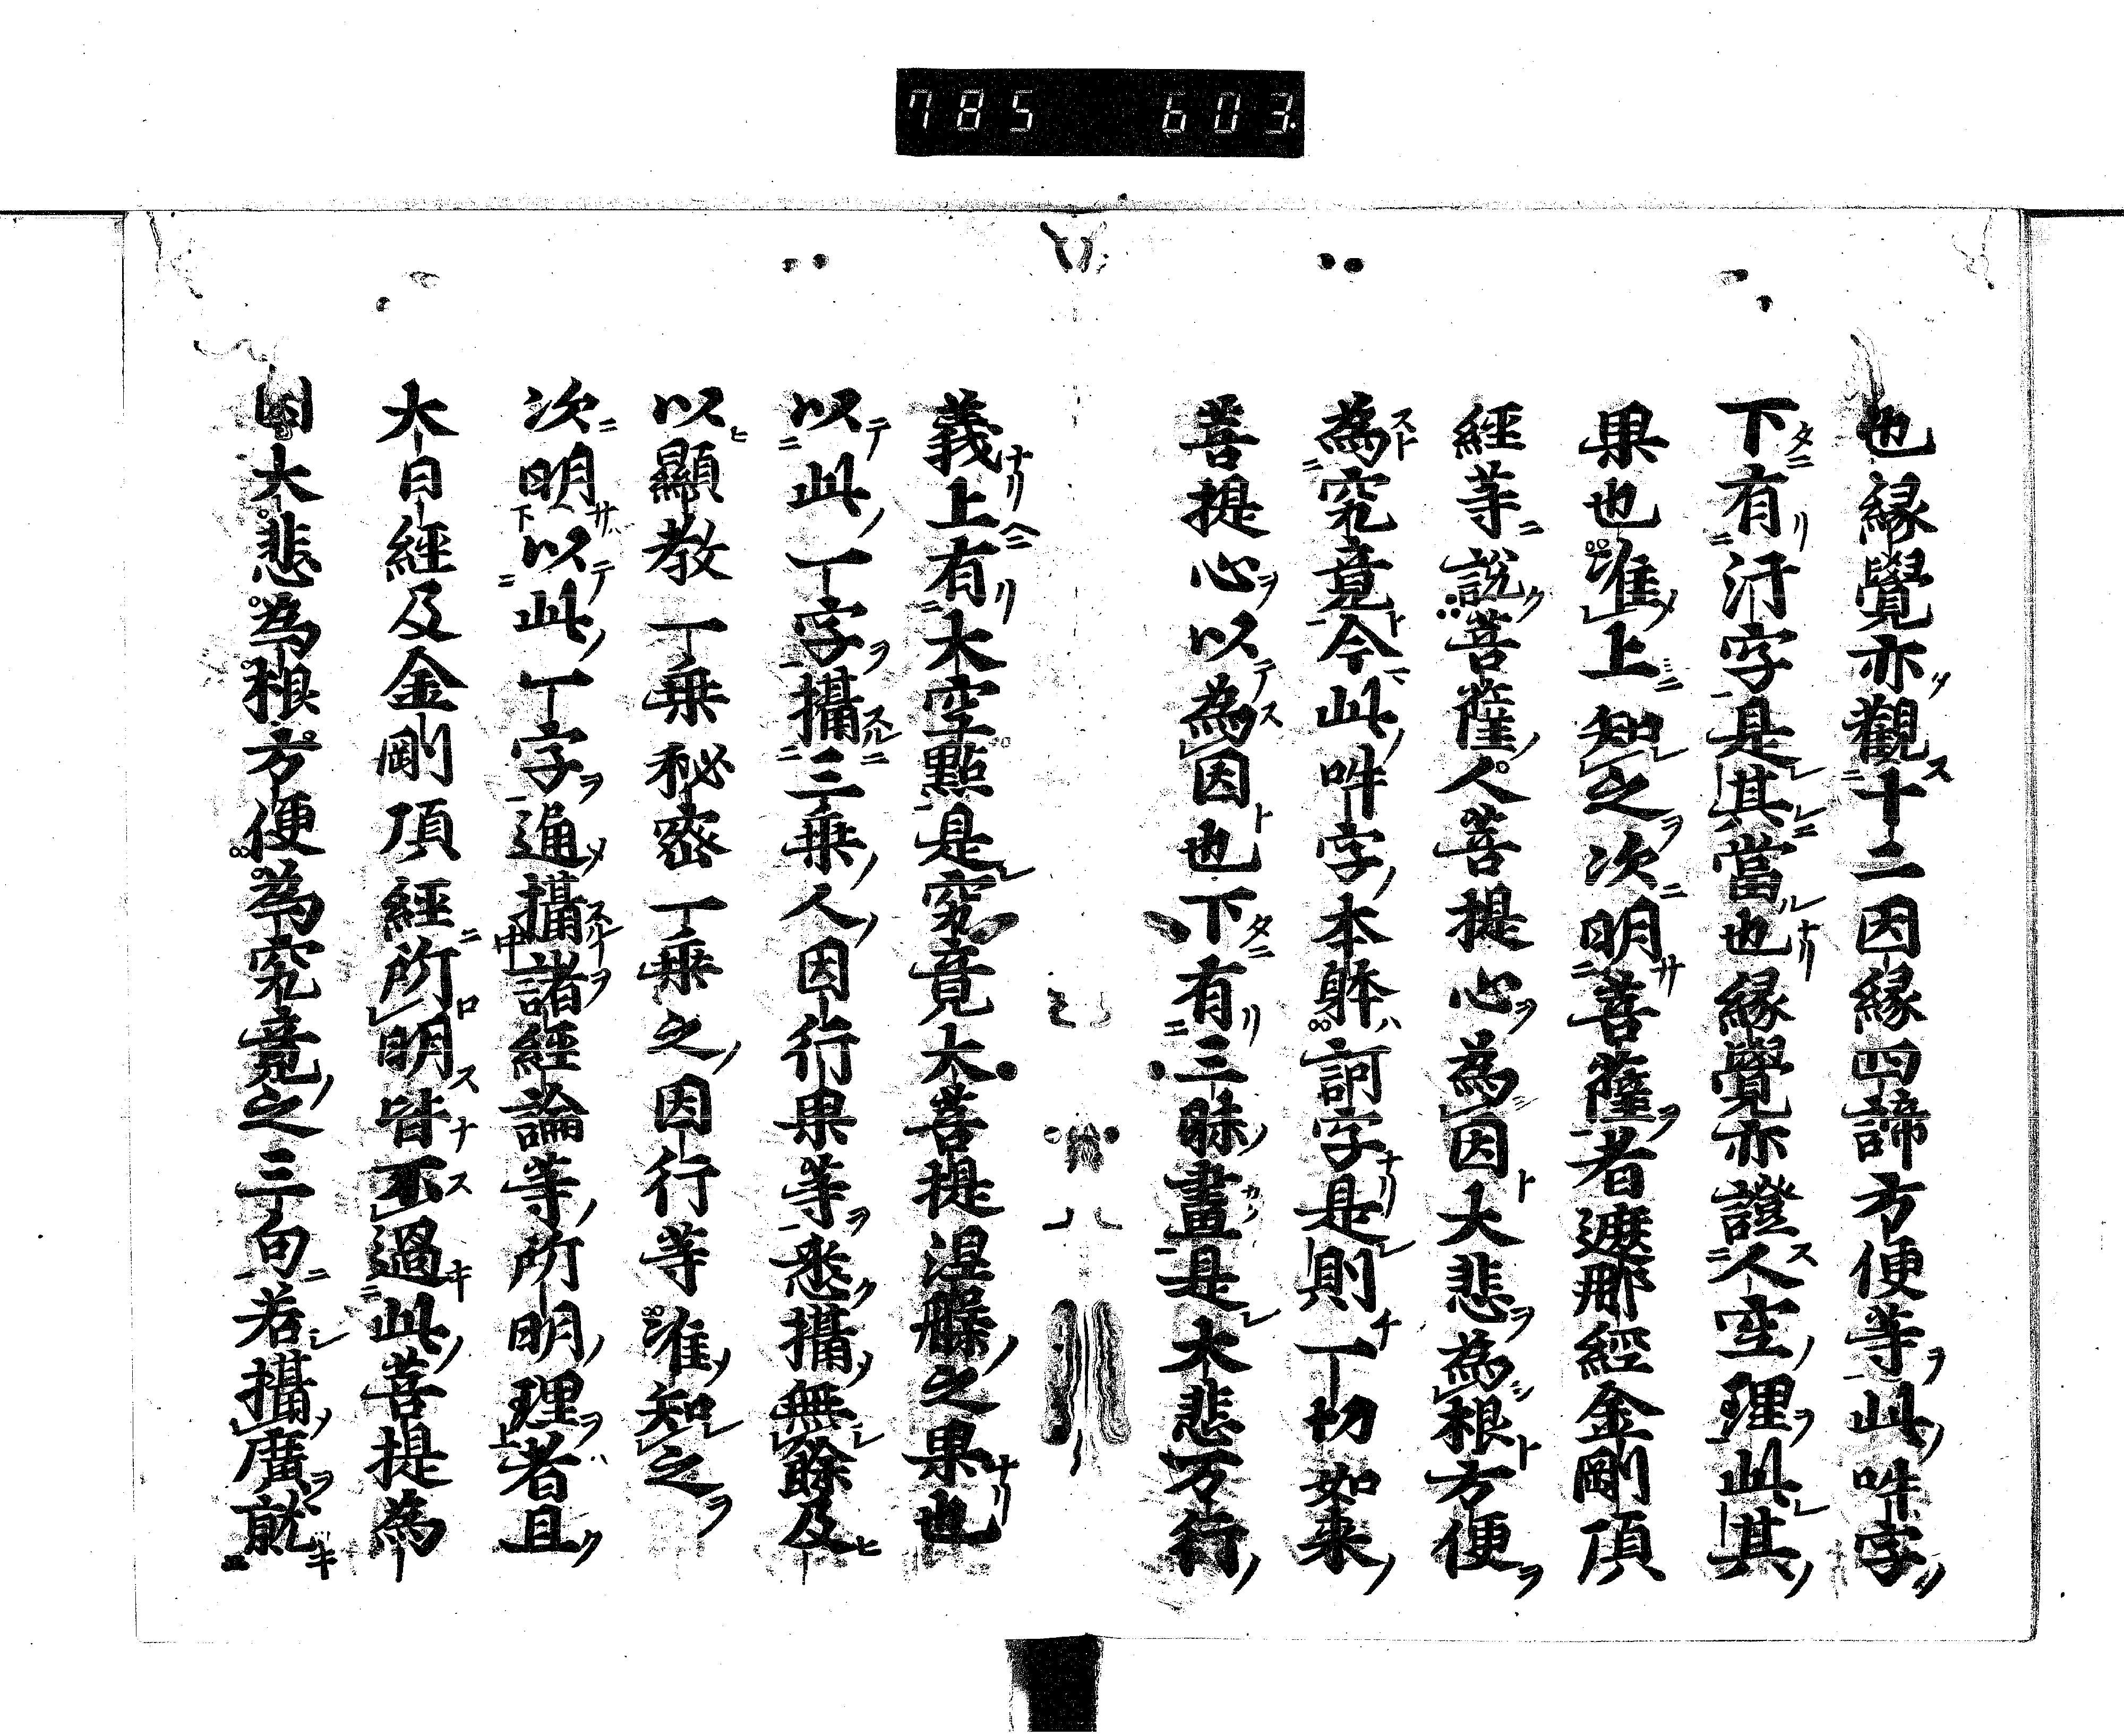 785 603
也縁覺亦觀十二因縁四諦方便等此吽字
下有汙字是其當也縁覺亦證人空理此其
果也准上知之次明菩薩者遮那經金剛頂
經等說菩薩人菩提心為因大悲為根方便
為究竟今此吽字本躰訶字是則一切如来
菩提心以為因也下有三昧畫是大悲万行
義上有大空點是究竟大菩提涅槃之果也
以此一字攝三乗人因行果等悉攝無餘及
以顯教一乗秘密一乗之因行等准知之
次明以此一字通攝諸經論等所明理者且
大日經及金剛頂經所明皆不過此菩提為
因大悲為根方便為究竟之三句若攝廣就